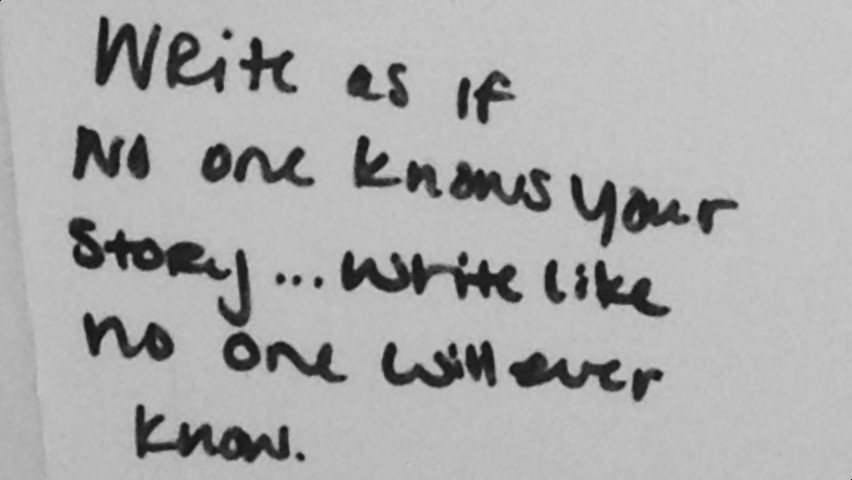 Write as if
No one knows your
story... write like
no one will ever
know.